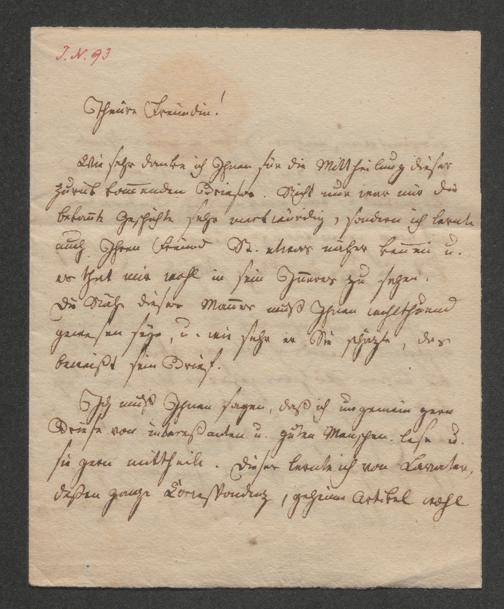 I. N. 93
Theure Freundin!
Wie sehr danke ich Ihnen für die Mittheilung dieser
zurük kommenden Briefe. Nicht nur war mir die
bekannte Geschichte sehr merkwürdig, sondern ich lernte
auch Ihren Freund St. etwas näher kennen u.
es that mir wohl in sein Inneres zu sehen.
Die Nähe dieses Mannes muß Ihnen wohlthuend
gewesen seyn, u. wie sehr er Sie schäzte, das
beweißt sein Brief.
Ich muß Ihnen sagen, daß ich ungemein gern
Briefe von interessanten u. guten Menschen lese u.
sie gern mittheile. Dieses lernte ich von Lavater,
deßen ganze Correspondenz, geheime Artikel wohl